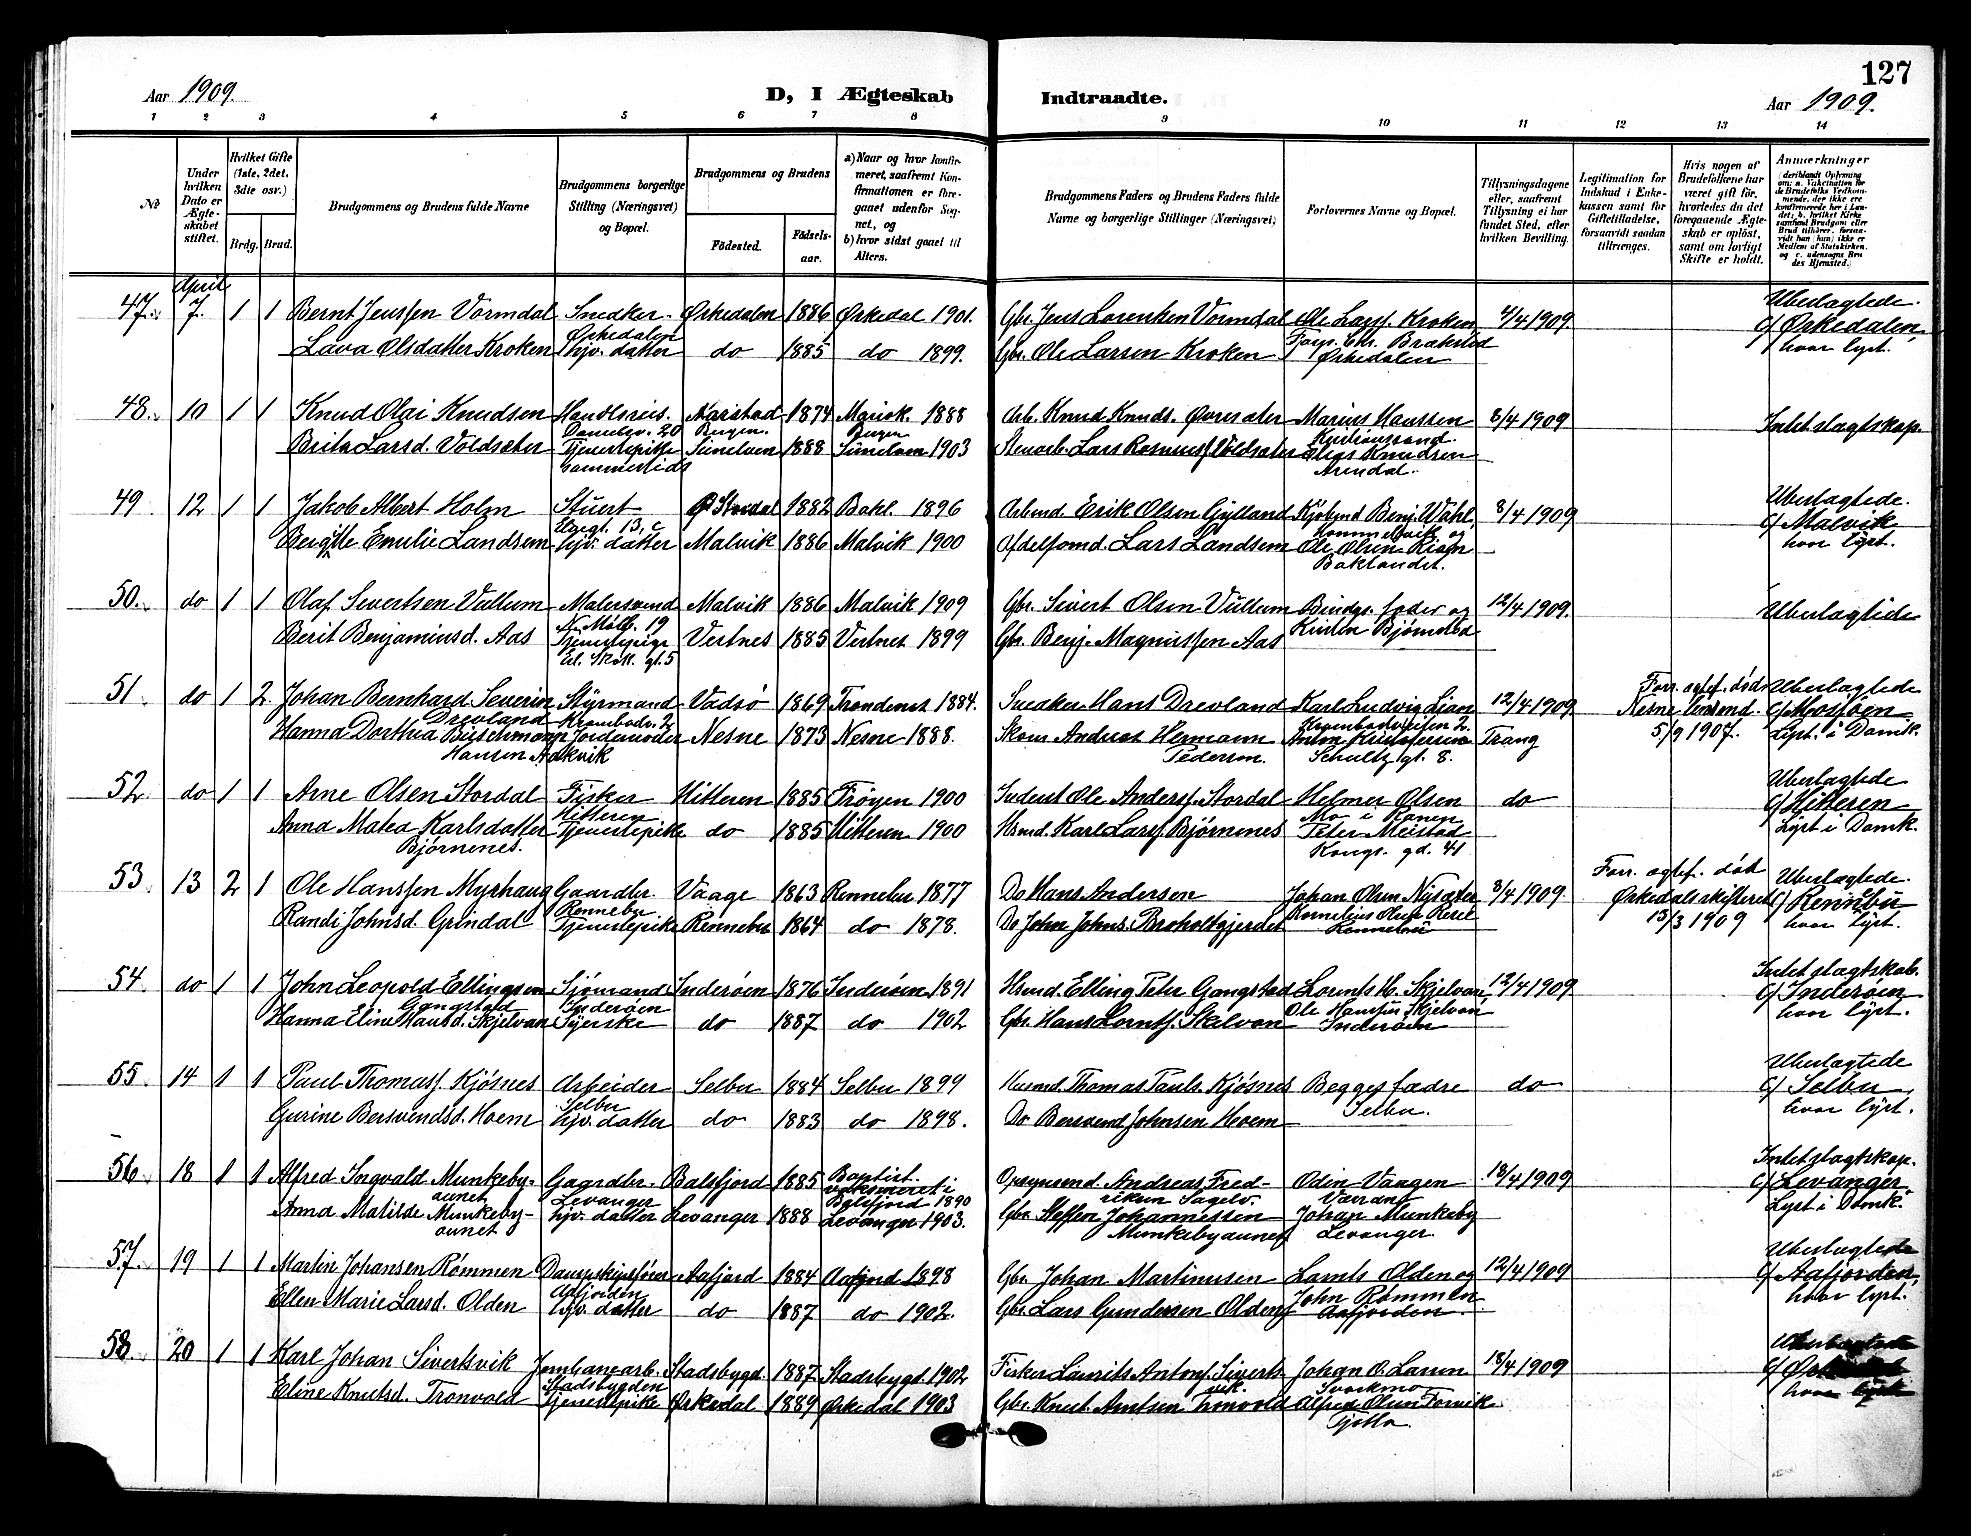 127
Aar 1909.
D, I Ægteskab Indtraadte.
Aar 1909.
1 2 3 4 5 6 7 8 9 10 11 12 13 14
No
Under hvilken Dato er Ægteskabet stiftet.
Hvilket Gifte (1ste, 2det, 3dte osv.)
Brdg. Brud.
Brudgommens og Brudens fulde Navne
Brudgommens borgerlige Stilling (Næringsvei) og Bopæl.
Brudgommens og Brudens
Fødested.
Fødselsaar.
a) Naar og hvor konfirmeret, saafremt Konfirmationen er foregaaet udenfor Sognet, og
b) hvor sidst gaaet til Alters.
Brudgommens Faders og Brudens Faders fulde Navne og borgerlige Stillinger (Næringsvei)
Forlovernes Navne og Bopæl.
Tillysningsdagene eller, saafremt Tillysning ei har fundet Sted, efter hvilken Bevilling.
Legitimation for Indskud i Enkekassen samt for Giftetilladelse, forsaavidt saadan tiltrænges.
Hvis nogen af Brudefolkene har været gift før, hvorledes da det foregaaende Ægteskab er opløst, samt om lovligt Skifte er holdt.
Anmerkninger
(deriblandt Oplysning om: a. Vakcination for de Brudefolks Vedkommende, der ikke ere konfirmerede her i Landet; b. hvilket Kirkesamfund Brudgom eller Brud tilhører, forsaavidt han (hun) ikke er Medlem af Statskirken, og c. udensogns Brudes Hjemsted.)
April
47. 7. 1 1 Bernt Jenssen Vormdal Snedker Ørkedalen 1886 Ørkedal 1901. Gbr. Jens Lorentsen Vormdal Ole Larss. Kroken 4/4 1909. Ubeslagtede.
Ørkedalen Forp. Chr. Brakstad c/ Ørkedalen,
Lava Olsdatter Kroken hjv. datter do 1885 do 1899. Gbr. Ole Larsen Kroken Ørkedalen hvor lyst.
48. 10 1 1 Knud Olai Knudsen Handlsreis. 1874 1888 Arb. Knud Knuds. Øvresæter Marius Hanssen 8/4 1909 Intet slagtskap.
20 Bergen. Bergen Kristiansand.
Brita Larsd. Voldsæter Tjenestepike Sunelven 1888 Sunelven 1903 Lars Rasmuss. Voldsæter Elias Knudsen
Arendal.
49 12 1 1 Jakob Albert Holm Stuert Ø Stordal 1882 Bakl. 1896 Arbmd. Erik Olsen Gylland Kjøbmd Benj. Wahl 8/4 1909 Ubeslagtede.
13, c Hommelvik og c/ Malvik
Bergitte Emilie Landsem hjv. datter Malvik 1886 Malvik 1900 Lars Landsem Ole Olsen hvor lyst.
Baklandet.
50. do 1 1 Olaf Sivertsen Vullum Malersvend Malvik 1886 Malvik 1909 Gbr. Sivert Olsen Vullum Brudgs. fader og 12/4 1909. Ubeslagtede
N. Møllb. 19 Kristen Bjørnstad
Berit Benjaminsd. Aas Tjenestepige Vertnes 1885 Vertnes 1899 Gbr. Benj. Magnussen Aas
gt. 5
51. do 1 2 Johan Bernhard Severin Styrmand Vadsø 1869 Trondenes 1884. Snedker Hans Drevland Karl Ludvig Lian 12/4 1909 Forr. egtef. døds Ubeslagtede
Drevland Krambodv. 2 Krambodveiten 2 Nesne lensmd. c/ Mosjøen
Hanna Dorthea Buschmann Jordemoder Nesne 1873 Nesne 1888. Skom Anders Hermann Anton Kristoffersen Trang 5/9 1907. Lyst. i Domk.
Hansen Aakvik Pedersen. Schultz gt. 8.
52. do 1 1 Arne Olsen Stordal Fisker Hitteren 1885 Frøyen 1900 Inderst Ole Anderss. Stordal Helmer Olsen do Ubeslagtede
Hitteren Mo i Ranen c/ Hitteren
Anna Matea Karlsdatter Tjenestepike do 1885 Hitteren 1900 Hsmd. Karl Larss. Bjørnenes Peter Meistad Lyst i Domk.
Bjørnenes. Kongs. gd. 41
53. 13 2 1 Ole Hanssen Myrhaug Gaardbr Vaage 1863 Rennebu 1877 Do Hans Andersen Johan Olsen Nysæter 8/4 1909 Forr. egtef. død Ubeslagtede.
Rennebu Ørkedalsskifteret c/ Rennebu
Randi Johnsd. Grindal Tjenestepike Rennebu 1864 do 1878. Do John Johns. Broholtgjerdet Rennebu 13/3 1909 hvor lyst.
54. do 1 1 John Leopold Ellingsen Sjømand Inderøen 1876 Inderøen 1891 Hsmd. Elling Peter Gangstad Lornts H. Skjelvan 12/4 1909. Intet slagtskab.
Gangstad Inderøen Ole Hanssen Skjelvan c/ Inderøen
Hanna Eline Hansd. Skjelvan Syerske do 1887 do 1902 Gbr. Hans Lorntss. Skelvan Inderøen hvor lyst.
55. 14 1 1 Paul Thomass. Kjøsnes Arbeider Selbu 1884 Selbu 1899 Husmd. Thomas Pauls. Kjøsnes Begges fædre do Ubeslagtede
Selbu Selbu. c/ Selbu
Gurine Bersvendsd. Hoem hjv. datter do 1883 do 1898. Do Bersvend Johnsen Hoem hvor lyst.
56. 18 1 1 Alfred Ingvald Munkeby- Gaardbr. Balsfjord 1885 Baptist. Opsynsmd. Andreas Fred- Odin Vangen 18/4 1909 Intet slagtskap.
aunet Levanger vaksineret i Balsfjord 1890 riksen Sagelv. c/ Levanger
Anna Matilde Munkeby- hjv. datter Levanger 1888 Levanger 1903. Gbr. Steffen Johannessen Johan Munkeby Lyst i Domk.
aunet Munkebyaunet Levanger.
57. 19 1 1 Martin Johansen Rømmen Dampskipsfører Aafjord 1884 Aafjord 1898 Gbr. Johan Martinusen Olden og 12/4 1909 Ubeslagtede
Aafjorden John Rømmen c/ Aafjorden,
Ellen Marie Larsd. Olden hjv. datter do 1887 do 1902. Gbr. Lars Gundersen Olden Aafjorden hvor lyst.
58. 20 1 1 Karl Johan Sivertsvik Jernbanearb. Stadsbygd. 1887 Stadsbygd. 1902 Fisker Laurits Antons. Siverts- Johan O. Larsen 18/4 1909 Ubeslagtede
Stadsbygden vik. Svorkmo c/
Eline Knutsd. Tronvold Tjenestepike Ørkedal 1889 Ørkedal 1903 Gbr. Knut Arntsen Tronvold Alfred Olsen Forvik hvor lyst
Tjøtta.